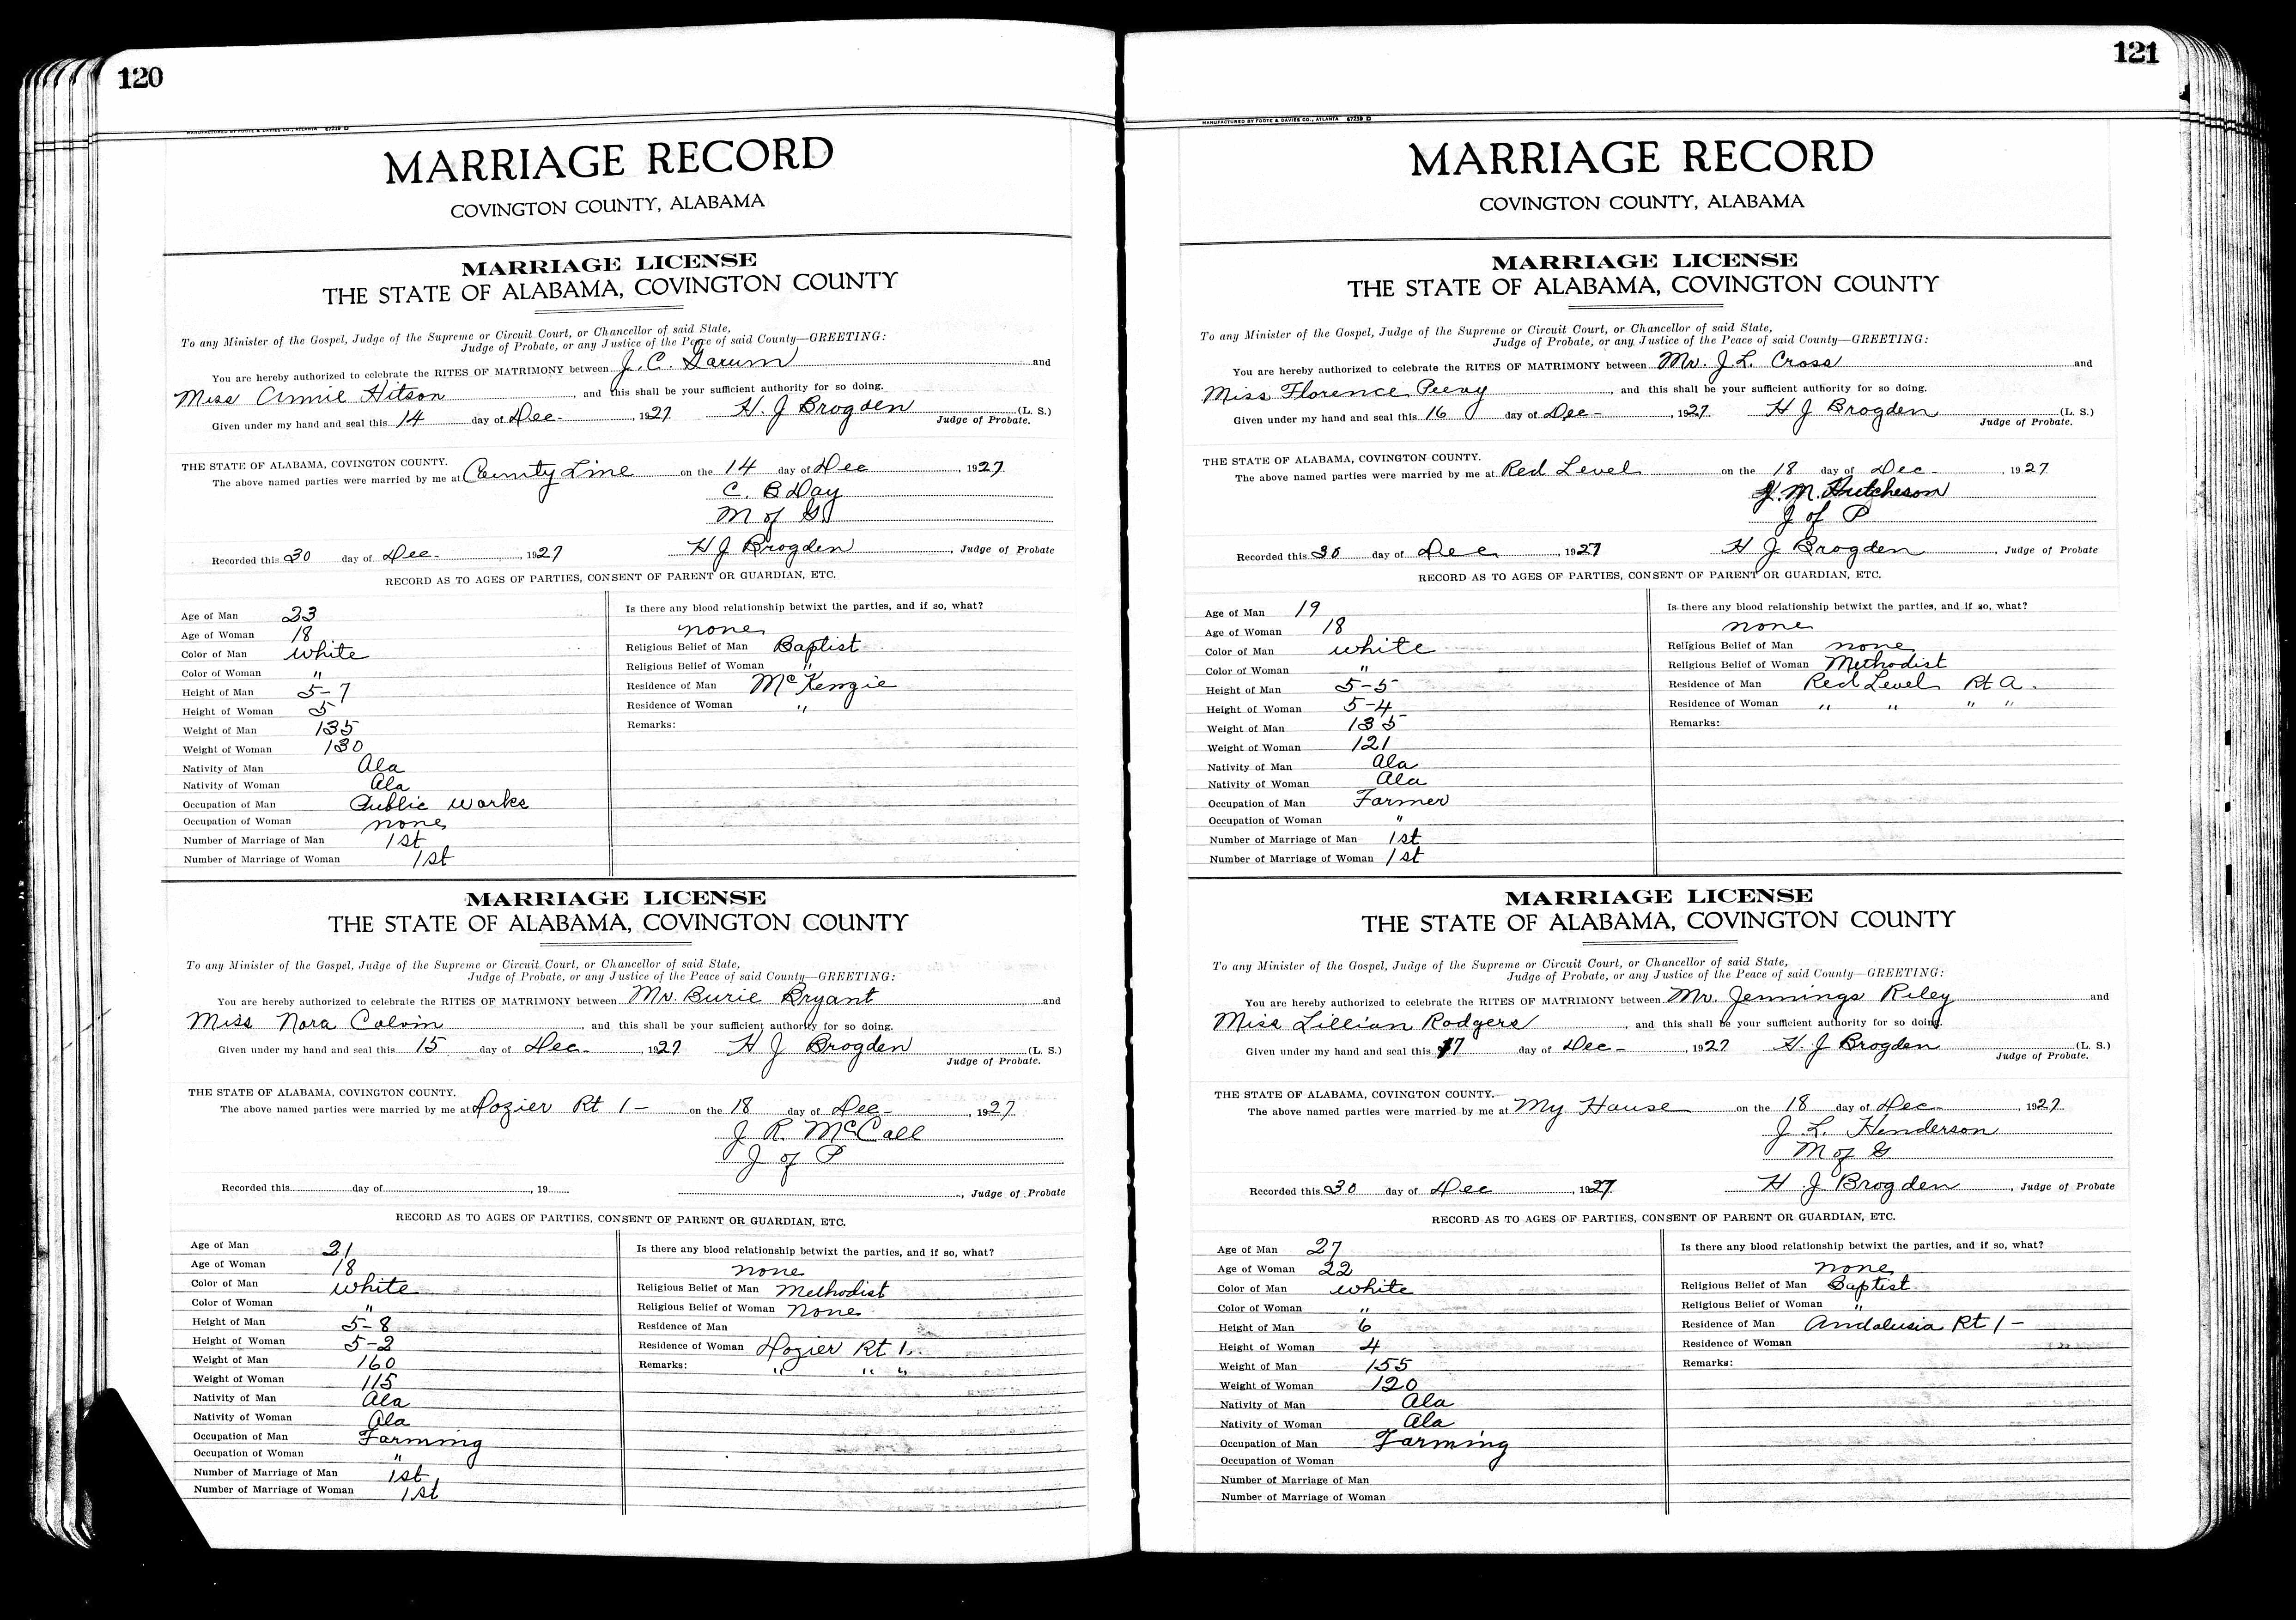 120
MANUFACTURED BY FOOTE & DAVIES CO., ATLANTA 67239 D
MARRIAGE RECORD
COVINGTON COUNTY, ALABAMA
MARRIAGE LICENSE
THE STATE OF ALABAMA, COVINGTON COUNTY
To any Minister of the Gospel, Judge of the Supreme or Circuit Court, or Chancellor of said State,
Judge of Probate, or any Justice of the Peace of said County—GREETING:
You are hereby authorized to celebrate the RITES OF MATRIMONY between J. C. Garum and
Miss Annie Hitson, and this shall be your sufficient authority for so doing.
Given under my hand and seal this 14 day of Dec-, 1927 H. J Brogden (L. S.)
Judge of Probate.
THE STATE OF ALABAMA, COVINGTON COUNTY.
The above named parties were married by me at County Line on the 14 day of Dec, 1927.
C. B Day
M of G
Recorded this 30 day of Dec-, 1927 H J Brogden, Judge of Probate
RECORD AS TO AGES OF PARTIES, CONSENT OF PARENT OR GUARDIAN, ETC.
Age of Man 23
Age of Woman 18
Color of Man white
Color of Woman "
Height of Man 5-7
Height of Woman 5
Weight of Man 135
Weight of Woman 130
Nativity of Man Ala
Nativity of Woman Ala
Occupation of Man Public works
Occupation of Woman none
Number of Marriage of Man 1st
Number of Marriage of Woman 1st
Is there any blood relationship betwixt the parties, and if so, what?
none
Religious Belief of Man Baptist
Religious Belief of Woman "
Residence of Man McKenzie
Residence of Woman "
Remarks:
MARRIAGE LICENSE
THE STATE OF ALABAMA, COVINGTON COUNTY
To any Minister of the Gospel, Judge of the Supreme or Circuit Court, or Chancellor of said State,
Judge of Probate, or any Justice of the Peace of said County—GREETING:
You are hereby authorized to celebrate the RITES OF MATRIMONY between Mr. Burie Bryant and
Miss Nora Colvin, and this shall be your sufficient authority for so doing.
Given under my hand and seal this 15 day of Dec-, 1927 H J Brogden (L. S.)
Judge of Probate.
THE STATE OF ALABAMA, COVINGTON COUNTY.
The above named parties were married by me at Dozier Rt 1- on the 18 day of Dec-, 1927.
J R. McCall
J of P
Recorded this day of , 19 , Judge of Probate
RECORD AS TO AGES OF PARTIES, CONSENT OF PARENT OR GUARDIAN, ETC.
Age of Man 21
Age of Woman 18
Color of Man white
Color of Woman "
Height of Man 5-8
Height of Woman 5-2
Weight of Man 160
Weight of Woman 115
Nativity of Man Ala
Nativity of Woman Ala
Occupation of Man Farming
Occupation of Woman "
Number of Marriage of Man 1st
Number of Marriage of Woman 1st
Is there any blood relationship betwixt the parties, and if so, what?
none
Religious Belief of Man Methodist
Religious Belief of Woman None
Residence of Man
Residence of Woman Dozier Rt 1.
Remarks: " " "
121
MANUFACTURED BY FOOTE & DAVIES CO., ATLANTA 67239 D
MARRIAGE RECORD
COVINGTON COUNTY, ALABAMA
MARRIAGE LICENSE
THE STATE OF ALABAMA, COVINGTON COUNTY
To any Minister of the Gospel, Judge of the Supreme or Circuit Court, or Chancellor of said State,
Judge of Probate, or any Justice of the Peace of said County—GREETING:
You are hereby authorized to celebrate the RITES OF MATRIMONY between Mr. J L. Cross and
Miss Florence Peevy, and this shall be your sufficient authority for so doing.
Given under my hand and seal this 16 day of Dec-, 1927. H J Brogden (L. S.)
Judge of Probate.
THE STATE OF ALABAMA, COVINGTON COUNTY.
The above named parties were married by me at Red Level on the 18 day of Dec-, 1927
J. M. Hutcheson
J of P
Recorded this 30 day of Dec, 1927 H J Brogden, Judge of Probate
RECORD AS TO AGES OF PARTIES, CONSENT OF PARENT OR GUARDIAN, ETC.
Age of Man 19
Age of Woman 18
Color of Man white
Color of Woman "
Height of Man 5-5
Height of Woman 5-4
Weight of Man 135
Weight of Woman 121
Nativity of Man Ala
Nativity of Woman Ala
Occupation of Man Farmer
Occupation of Woman "
Number of Marriage of Man 1st
Number of Marriage of Woman 1st
Is there any blood relationship betwixt the parties, and if so, what?
none
Religious Belief of Man none
Religious Belief of Woman Methodist
Residence of Man Red Level Rt A.
Residence of Woman " " " "
Remarks:
MARRIAGE LICENSE
THE STATE OF ALABAMA, COVINGTON COUNTY
To any Minister of the Gospel, Judge of the Supreme or Circuit Court, or Chancellor of said State,
Judge of Probate, or any Justice of the Peace of said County—GREETING:
You are hereby authorized to celebrate the RITES OF MATRIMONY between Mr. Jennings Riley and
Miss Lillian Rodgers, and this shall be your sufficient authority for so doing.
Given under my hand and seal this 17 day of Dec-, 1927 H. J Brogden (L. S.)
Judge of Probate.
THE STATE OF ALABAMA, COVINGTON COUNTY.
The above named parties were married by me at My House on the 18 day of Dec-, 1927.
J L. Henderson
M of G
Recorded this 30 day of Dec, 1927. H J Brogden, Judge of Probate
RECORD AS TO AGES OF PARTIES, CONSENT OF PARENT OR GUARDIAN, ETC.
Age of Man 27
Age of Woman 22
Color of Man white
Color of Woman "
Height of Man 6
Height of Woman 4
Weight of Man 155
Weight of Woman 120
Nativity of Man Ala
Nativity of Woman Ala
Occupation of Man Farming
Occupation of Woman
Number of Marriage of Man
Number of Marriage of Woman
Is there any blood relationship betwixt the parties, and if so, what?
none
Religious Belief of Man Baptist
Religious Belief of Woman "
Residence of Man Andalusia Rt 1-
Residence of Woman
Remarks: